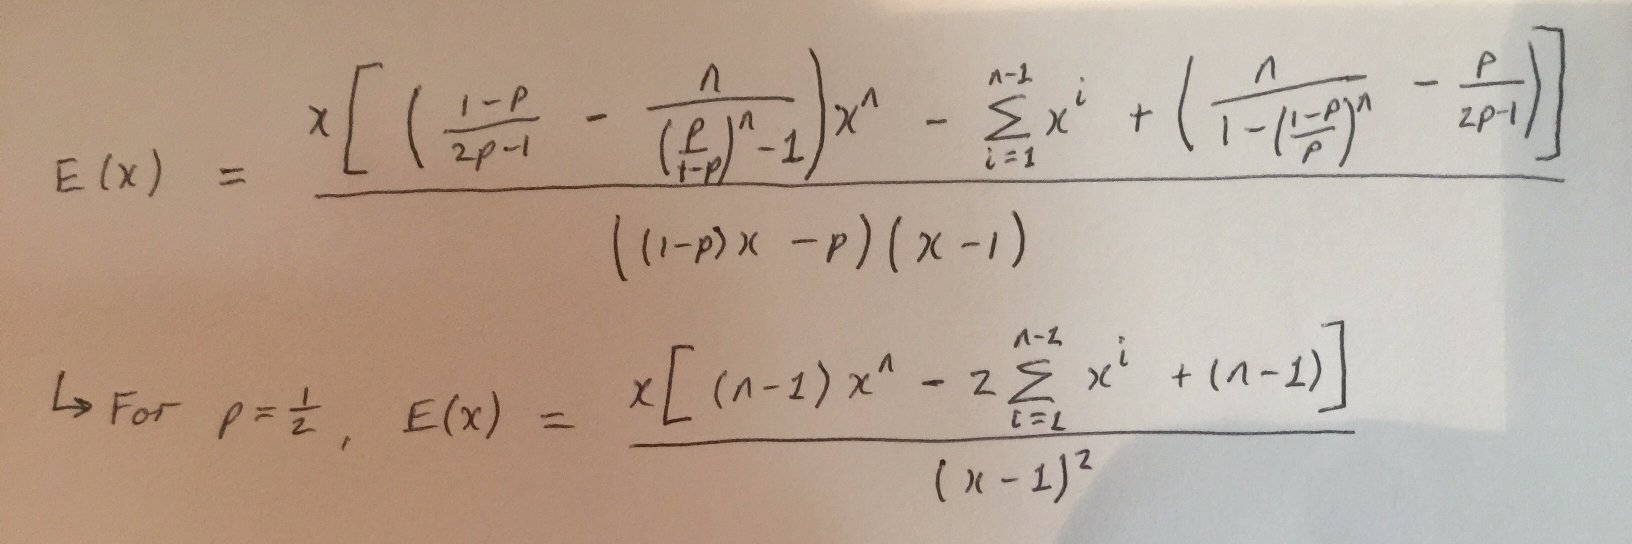 E(x) = x[((1-p)/(2p-1) - n/((p/(1-p))^n - 1))x^n - Σ_{i=1}^{n-1} x^i + (n/(1-((1-p)/p)^n) - p/(2p-1))] / ((1-p)x - p)(x-1)
↳ For p = 1/2, E(x) = x[(n-1)x^n - 2Σ_{i=1}^{n-1} x^i + (n-1)] / (x-1)^2